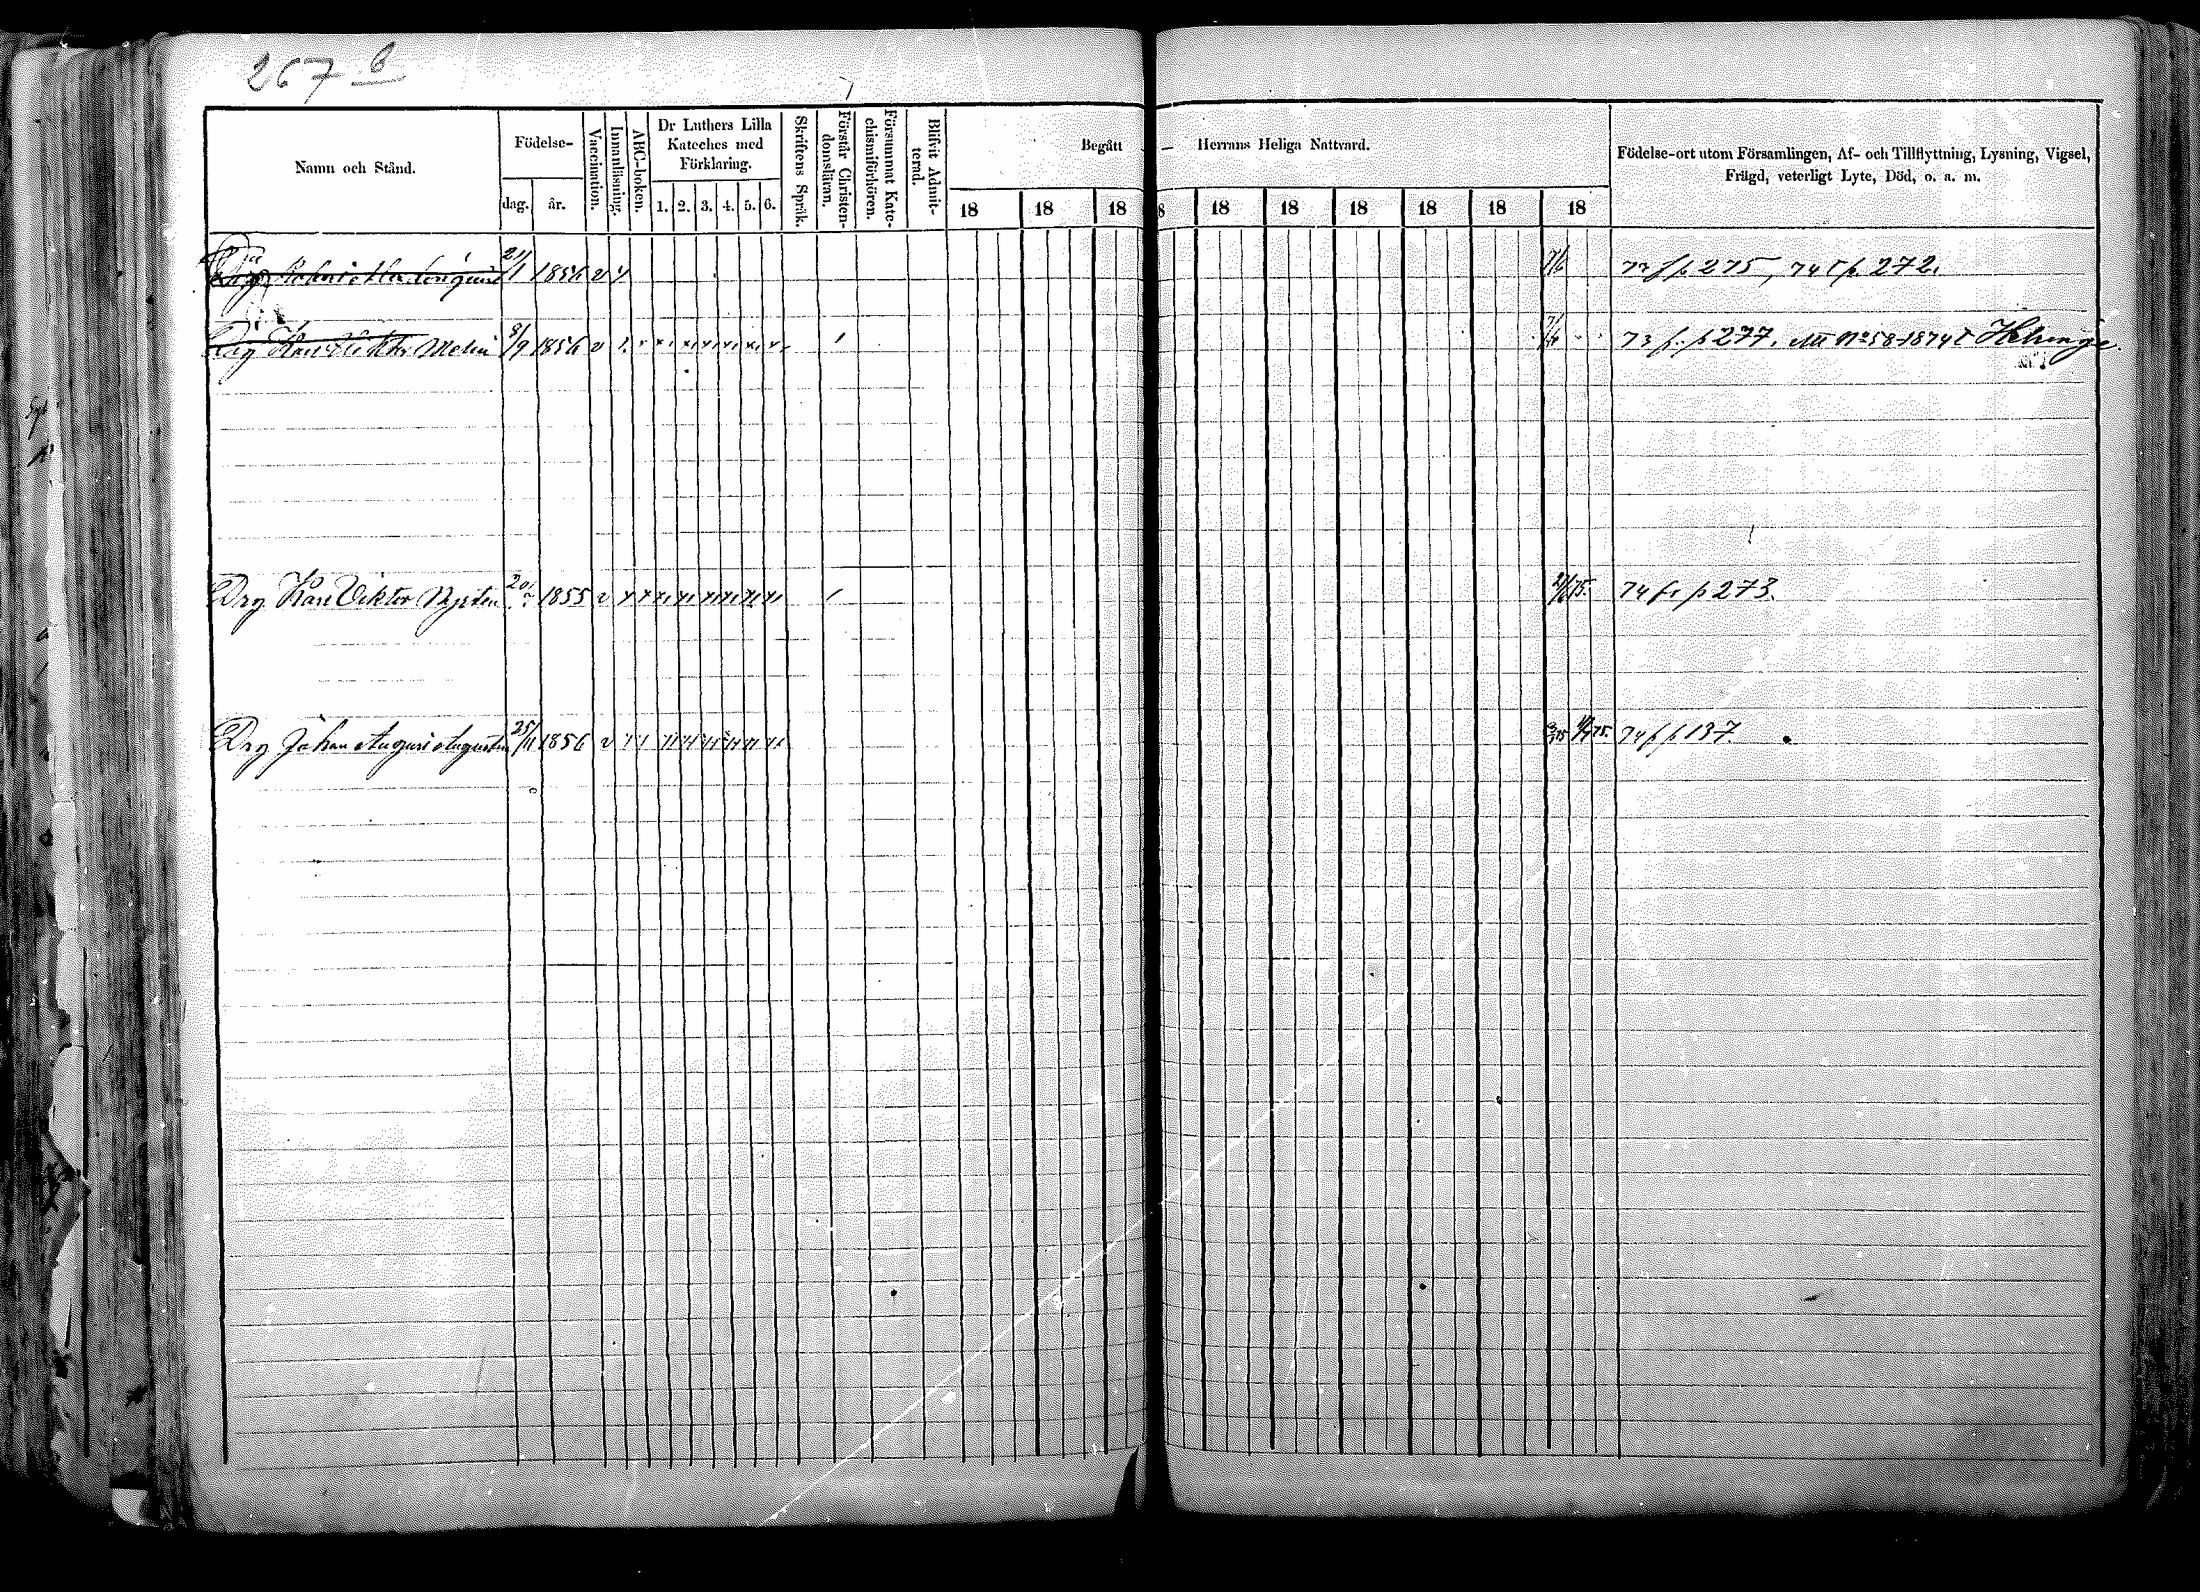 267 b
Namn och Stånd.
Födelse-
dag.
år.
Vaccination.
Innanläsning.
ABC-boken.
Dr Luthers Lilla
Kateches med
Förklaring.
1. 2. 3. 4. 5. 6.
Skriftens Språk.
Förstår Christen-
domsläran.
Försummat Kate-
chismiförhören.
Blifvit Admit-
terad.
Begått — Herrans Heliga Nattvard.
18 18 18 8 18 18 18 18 18 18
Födelse-ort utom Församlingen, Af- och Tillflyttning, Lysning, Vigsel,
Frägd, veterligt Lyte, Död, o. a. m.
21/1 1856 v 7/6 73 f p 275, 74 t p. 272.
Drg Karl Viktor Melin 8/9 1856 v 73 f. p 277. Att No 58 1874 t Helsinge
Drg Karl Viktor Nysten 1855 v 74 fr p 273.
Drg Johan August Augustin 25/11 1856 v 74 f p. 137.